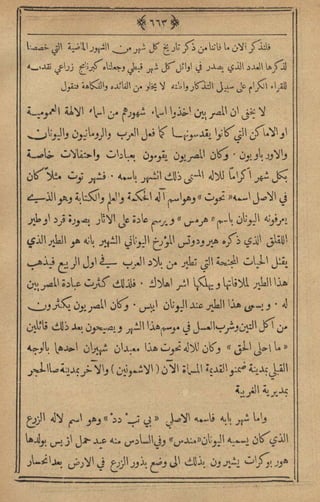 ﴿ ٦٦٣ ﴾
فلنذكر الآن ما فاتنا من ذكر تاريخ كل شهر من الشهور الماضية التي خصصنا
لذكرها العدد الذي يصدر في اوائل كل شهر قبطي وجعلناه كبرنامج زراعي نقدمه
للقراء الكرام على سبيل التذكار وانه لا يخلو من الفائدة والفكاهة فنقول
لا يخفى ان المصريين اخذوا اسماء شهورهم من اسماء الالهة العمومية
او الاماكن التي كانوا يقدسونها كما فعل العرب والرومانيون واليونان
والاوروباويون . وكان المصريون يقومون بعبادات واحتفالات خاصة
بكل شهر أكرامًا للاله المسمى ذلك الشهر باسمه . فشهر توت مثلاً كان
في الاصل اسمه «تحوت» وهو اسم آله الحكمة والعلم والكتابة وهو الذي
يعرفونه اليونان باسم « هرمس » ويرسم عادة على الآثار بصورة قرد او طير
اللقلق الذي ذكره هيرودوتس المؤرخ اليوناني الشهير بانه هو الطير الذي
يقتل الحيات المجنحة التي تطير من بلاد العرب في اول الربيع فيذهب
هذا الطير لملاقاتها ويهلكها اشر اهلاك . فلذلك كثرت عبادة المصريين
له . ويسمى هذا الطير عند اليونان ايبس . وكان المصريون يكثرون
من أكل التين وشرب العسل في موسم هذا الشهر ويصيحون بعد ذلك قائلين
« ما احلى الحق » وكان للاله تحوت هذا معبدان شهيران احدهما بالوجه
القبلي بمدينة شمنو القديمة المسماة الآن ( الاشمونين ) والآخر بمدينة صا الحجر
بمديرية الغربية
واما شهر بابه فاسمه الاصلي « بي تب دد » وهو اسم لاله الزرع
الذي كان يسميه اليونان «مندس» وفي السادس منه عيد حمل ازيس بولدها
هور بوكرات يشيرون بذلك الى وضع بذور الزرع في الارض بعد انحسار